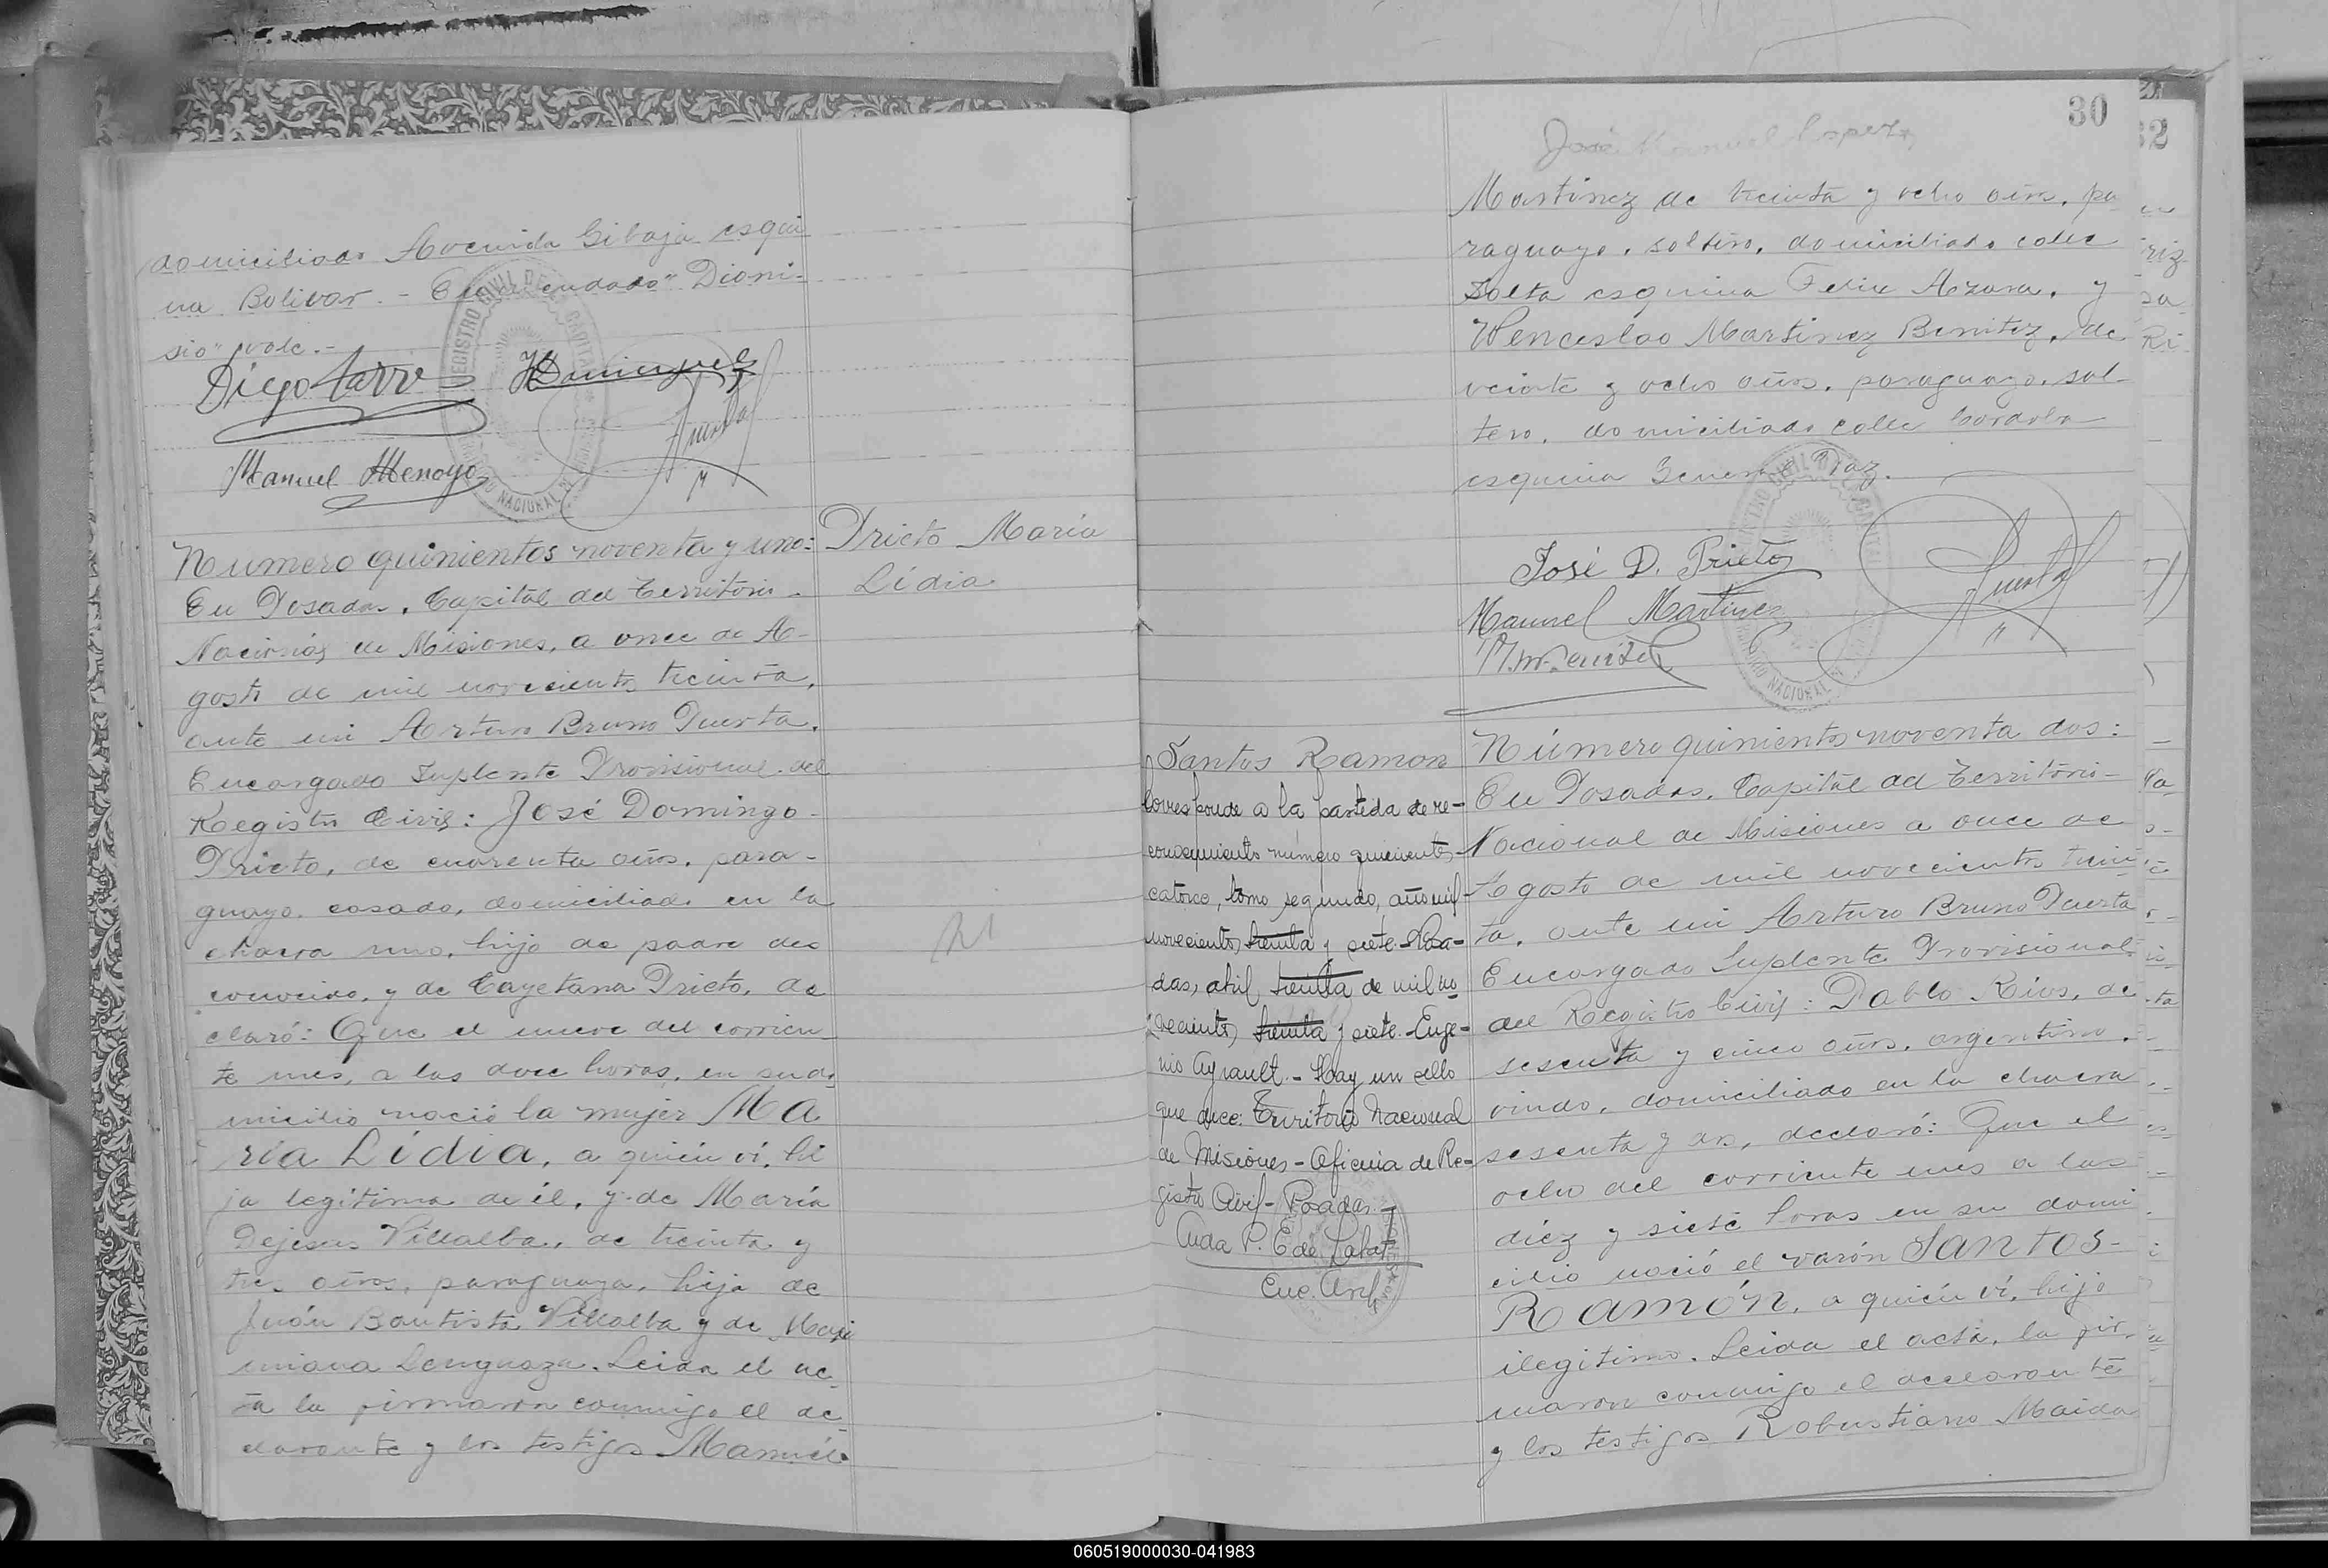 domiciliado Avenida Gibaja esqui
na Bolivar. - Enmendado "Dioni-
sio" vale. -
Diego
Manuel Menoyo
REGISTRO CIVIL DE LA CAPITAL
NACIONAL
Prieto María
Lidia
Numero quinientos noventa y uno:
En Posadas, Capital del Territorio
Nacional de Misiones, a once de A-
gosto de mil novecientos treinta,
ante mi Arturo Bruno Puerta,
Encargado Suplente Provisional del
Registro Civil: José Domingo
Prieto, de cuarenta años, para-
guayo, casado, domiciliado en la
chacra uno, hijo de padre des
conocido, y de Cayetana Prieto, de
claró: Que el nueve del corrien
te mes, a las doce horas, en su do
micilio nació la mujer Ma
ría Lidia, a quién ví, hi
ja legitima de él, y de María
Dejesus Villalba, de treinta y
tres años, paraguaya, hija de
Juán Bautista Villalba y de Maxi
miana Leda el ac
ta la firmaron conmigo el de
clarante y los testigos Manuel
30
32
José Manuel Lopez
Martinez de treinta y ocho años, pa
raguayo, soltero, domiciliado calle
Salta esquina Felix Azara, y
Wenceslao Martinez Benitez, de
veinte y ocho años, paraguayo, sol-
tero, domiciliado calle Cordoba
esquina General Paz.
José D. Prieto
Manuel Martinez
Santos Ramon
Corresponde a la partida de re-
conocimiento número quinientos
catorce, tomo segundo, año mil
novecientos treinta y siete. Posa-
das, abril treinta de mil no
vecientos treinta y siete. Euge-
nio Ayrault. - Hay un sello
que dice: Territorio Nacional
de Misiones - Oficina de Re-
gistro Civil - Posadas. -
Número quinientos noventa dos:
En Posadas, Capital del Territorio
Nacional de Misiones a once de
Agosto de mil novecientos trein
ta, ante mi Arturo Bruno Puerta
Encargado Suplente Provisional
del Registro Civil: Pablo Rios, de
sesenta y cinco años, argentino,
viudo, domiciliado en la chacra
sesenta y dos, declaró: Que el
ocho del corriente mes a las
diéz y siete horas en su domi
cilio nació el varón Santos
Ramón, a quién ví, hijo
ilegitimo. Leida el acta, la fir
maron conmigo el declarante
y los testigos Robustiano Maida
060519000030-041983